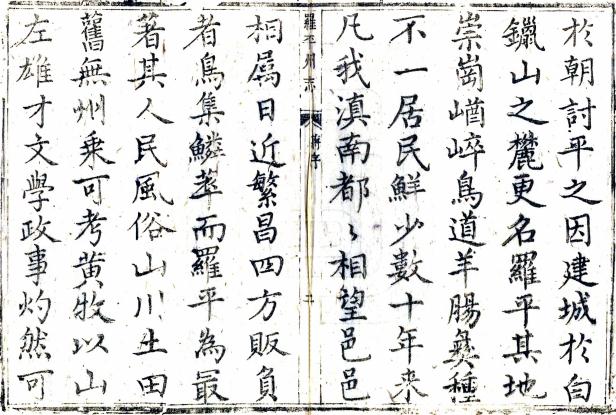 扵朝討平之因建城扵白
鑞山之麓更名羅平其地
崇崗崷崪鳥道羊腸彝種
不一居民鮮少數十年来
凡我滇南都〻相望邑邑
羅平州志
序
二
相属日近繁昌四方販負
者鳥集鱗萃而羅平為最
著其人民風俗山川土田
舊無州乗可考黄牧以山
左雄才文學政事灼然可